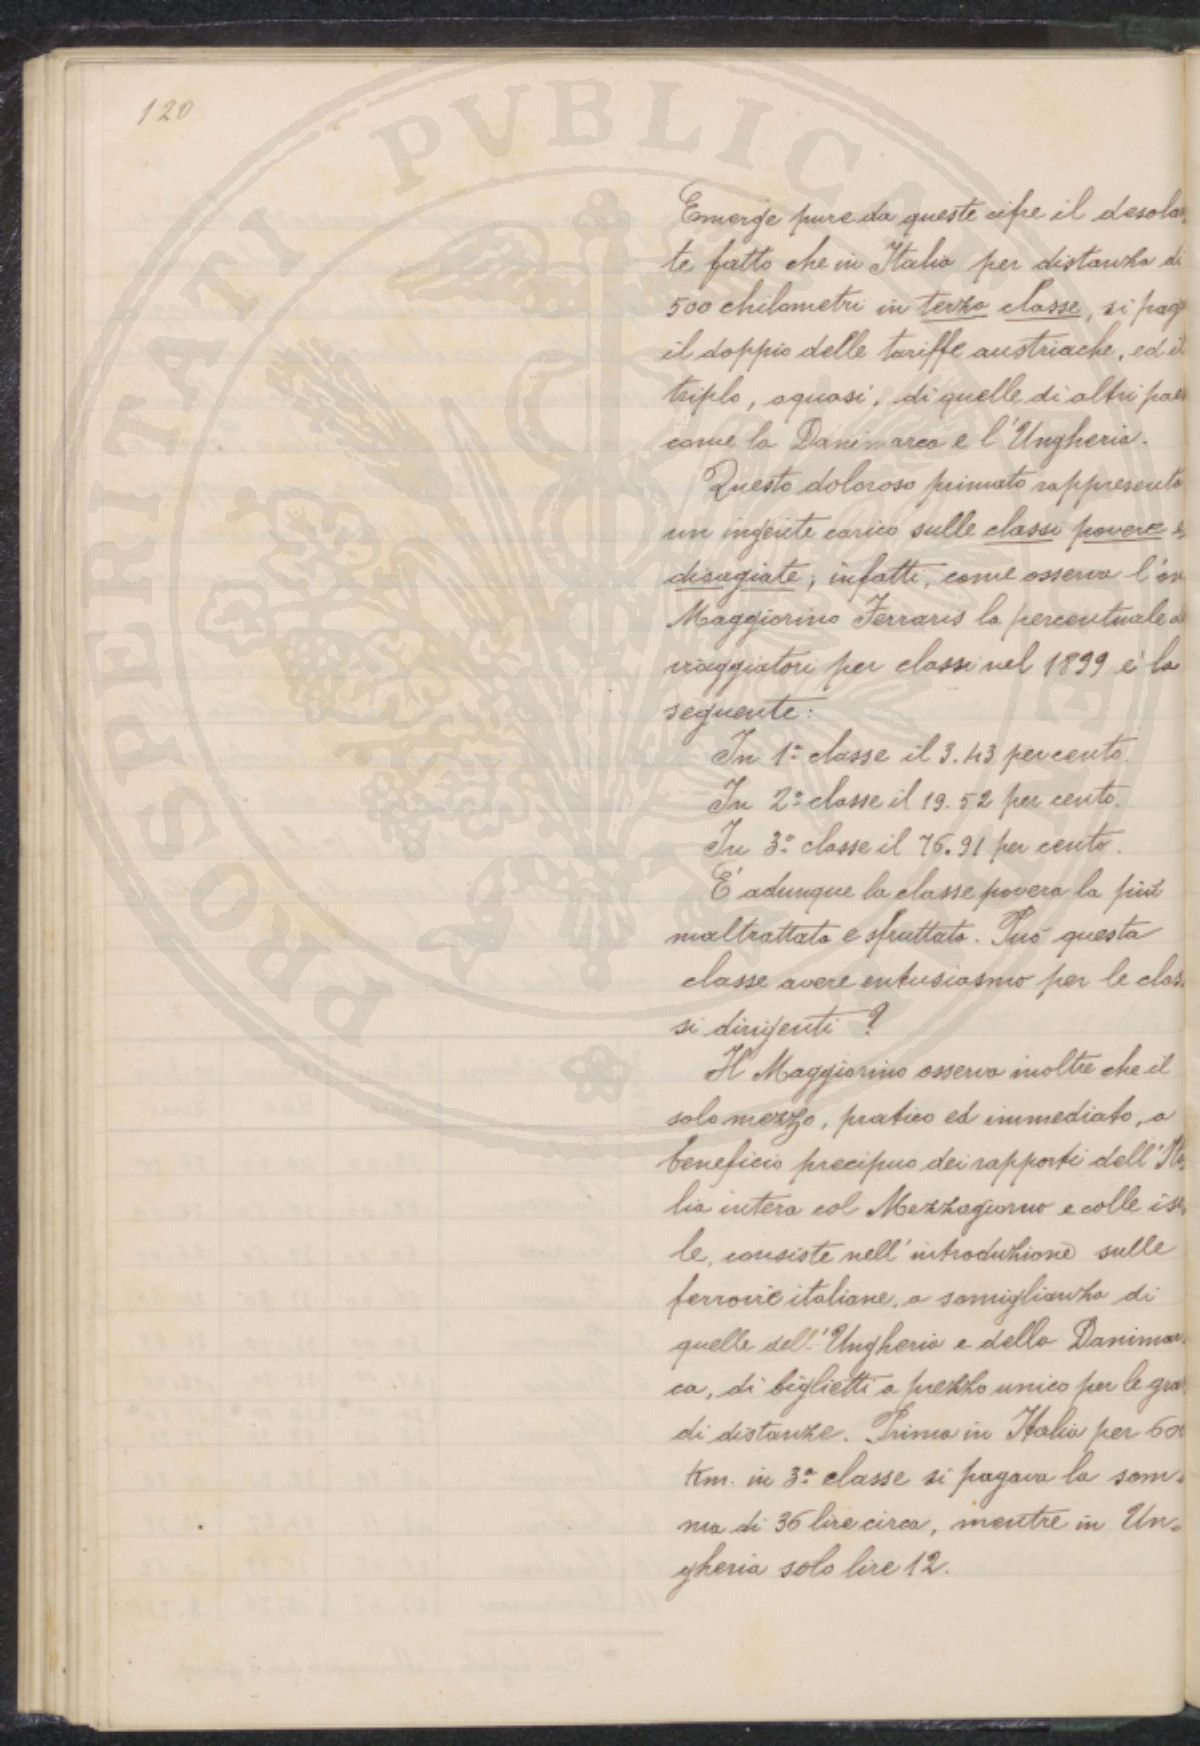 120
PVBLICAE
PROSPERITATI
Emerge pure da queste cifre il desolan
te fatto che in Italia per distanza di
500 chilometri in terza classe, si paga
il doppio delle tariffe austriache, ed il
triplo, o quasi, di quelle di altri paes
come la Danimarca e l'Ungheria.
Questo doloroso primato rappresenta
un ingente carico sulle classi povere e
disagiate; infatti, come osserva l'on
Maggiorino Ferraris la percentuale d
viaggiatori per classi nel 1899 è la
seguente:
In 1ª classe il 3.43 per cento.
In 2ª classe il 19.52 per cento.
In 3ª classe il 76.91 per cento.
E' adunque la classe povera la piú
maltrattata e sfruttata. Puó questa
classe avere entusiasmo per le clas
si dirigenti?
Il Maggiorino osserva inoltre che il
solo mezzo, pratico ed immediato, a
beneficio precipuo dei rapporti dell'Ita
lia intera col Mezzogiorno e colle iso
le, consiste nell'introduzione sulle
ferrovie italiane, a somiglianza di
quelle dell'Ungheria e della Danimar
ca, di biglietti a prezzo unico per le gran
di distanze. Prima in Italia per 600
Km. in 3ª classe si pagava la som=
ma di 36 lire circa, mentre in Un=
gheria solo lire 12.